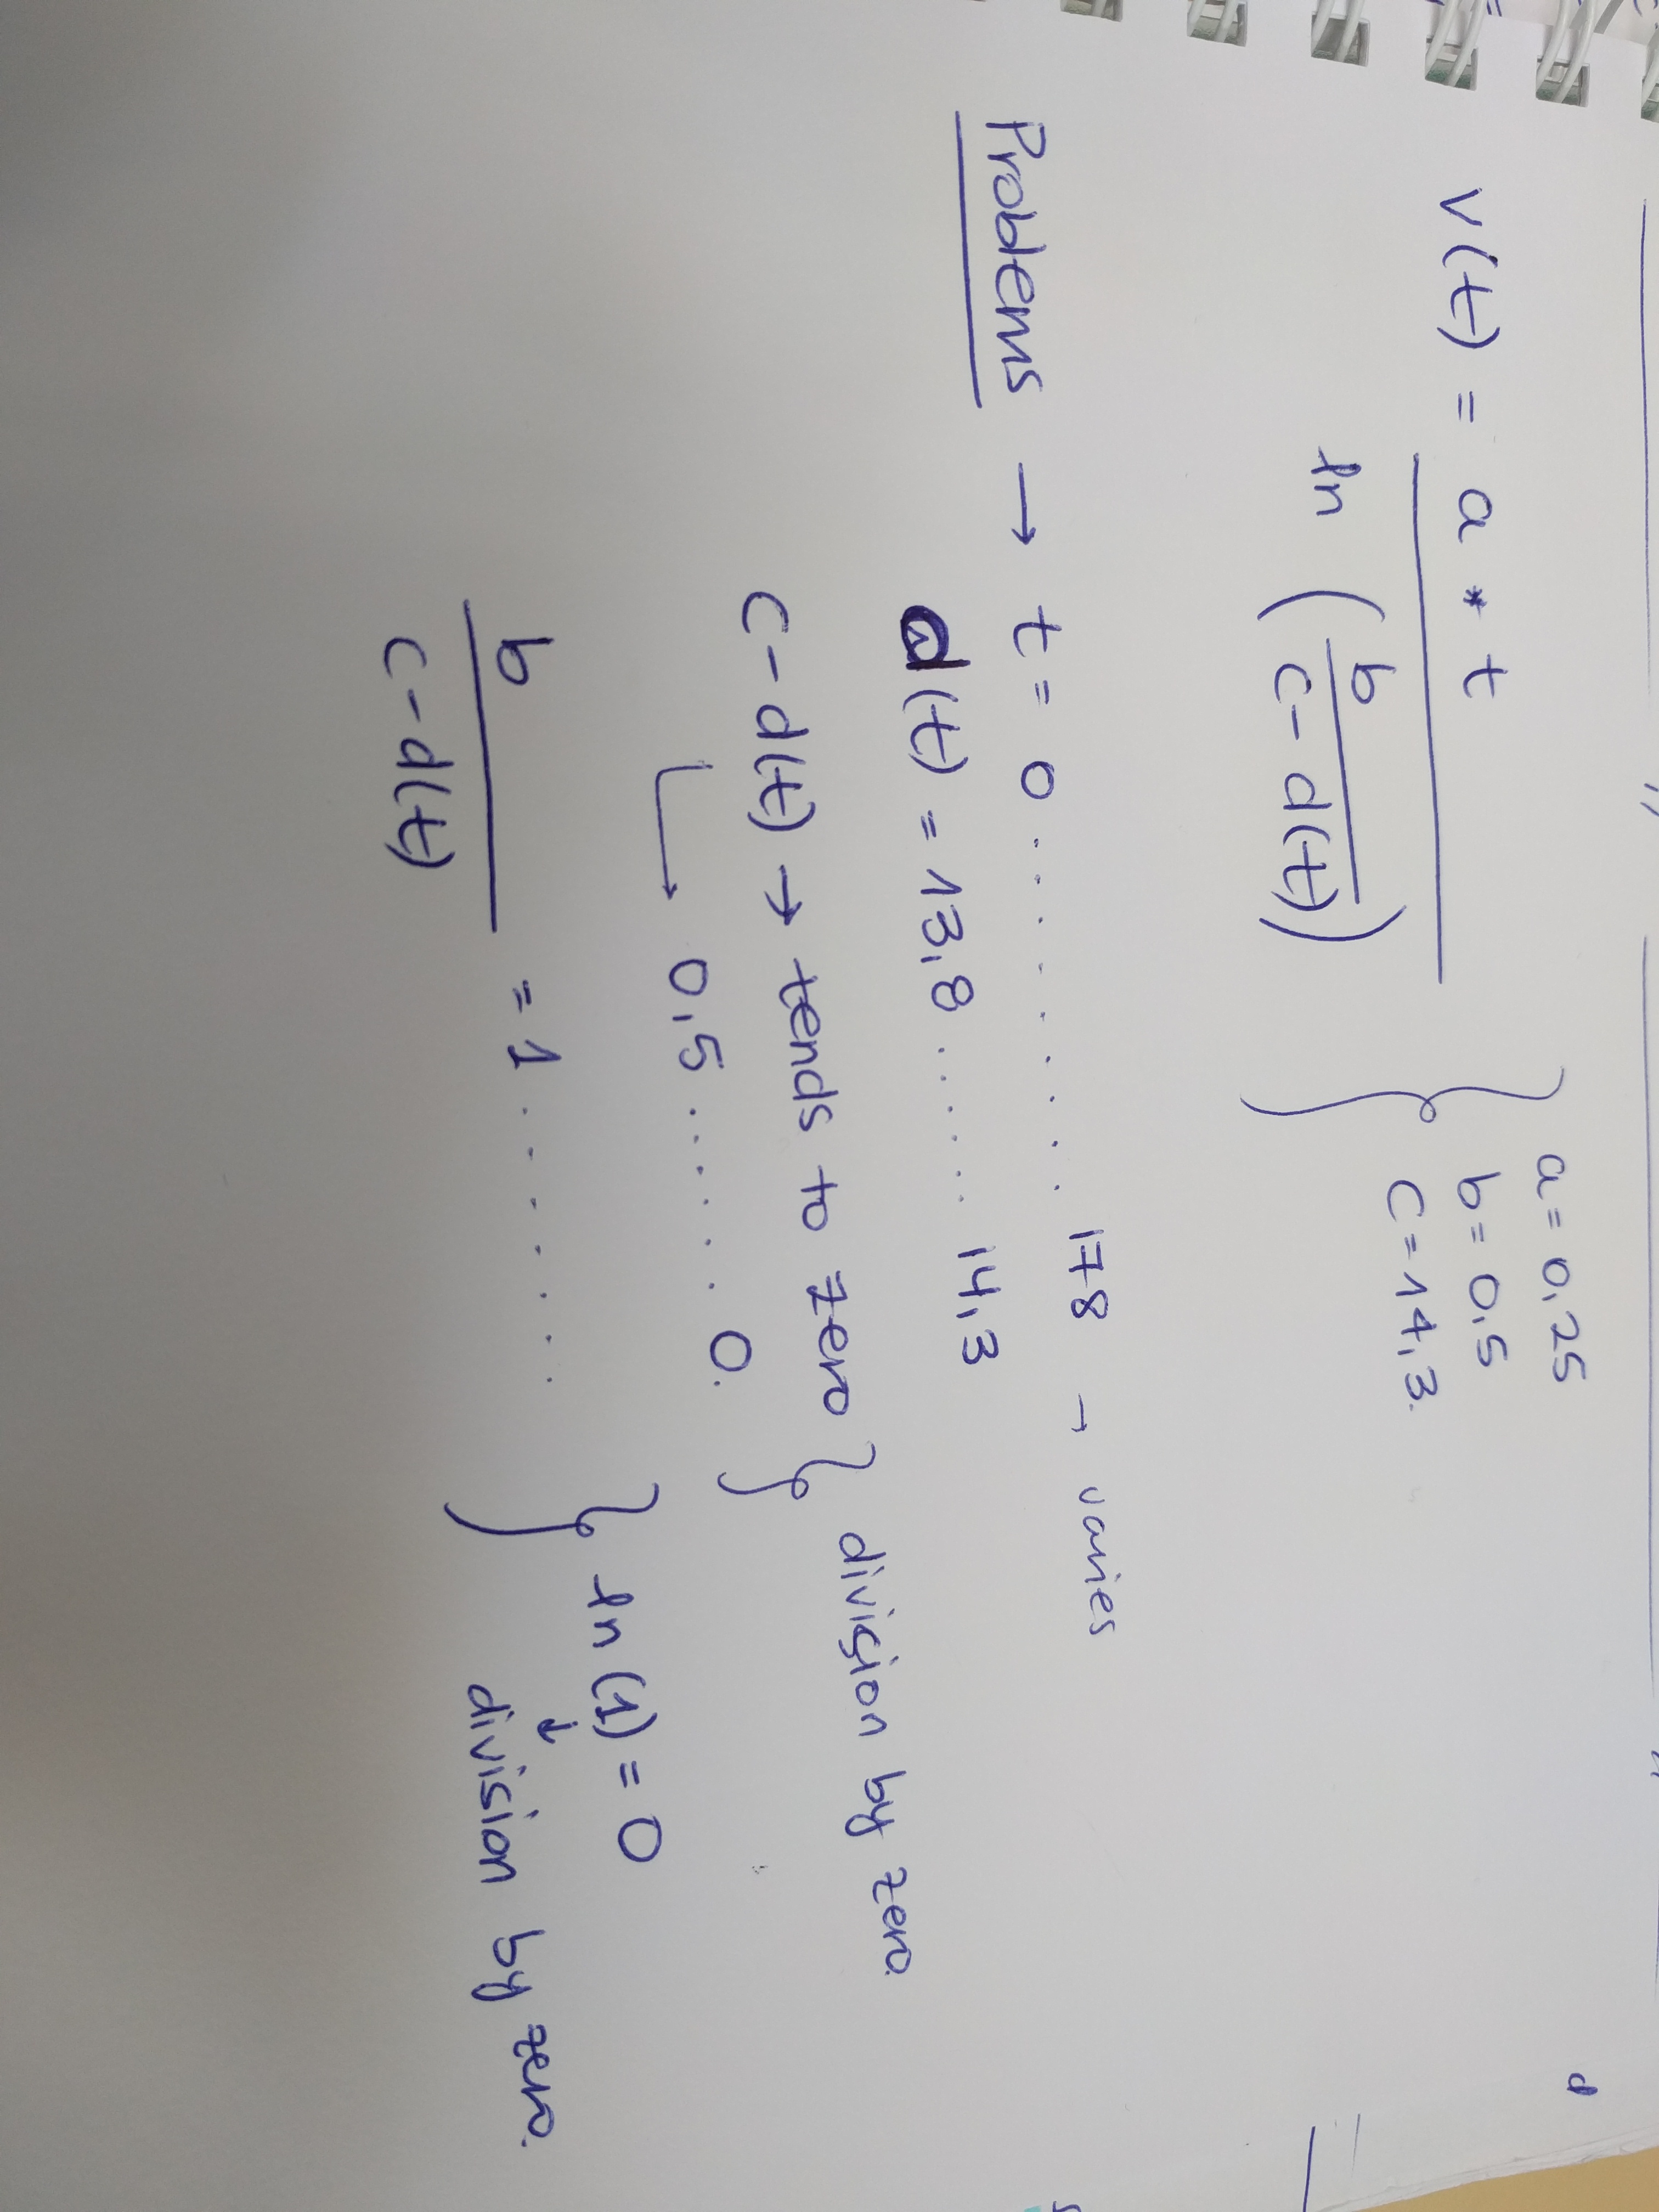 v(t) = a * t
ln ( b
c - d(t) )
a = 0,25
b = 0,5
c = 14,3.
Problems → t = 0 .......... 178 → varies
d(t) = 13,8 ...... 14,3
c - d(t) → tends to zero } division by zero.
0,5 ...... 0.
b
c - d(t)
= 1 ....... } ln (1) = 0
↓
division by zero.